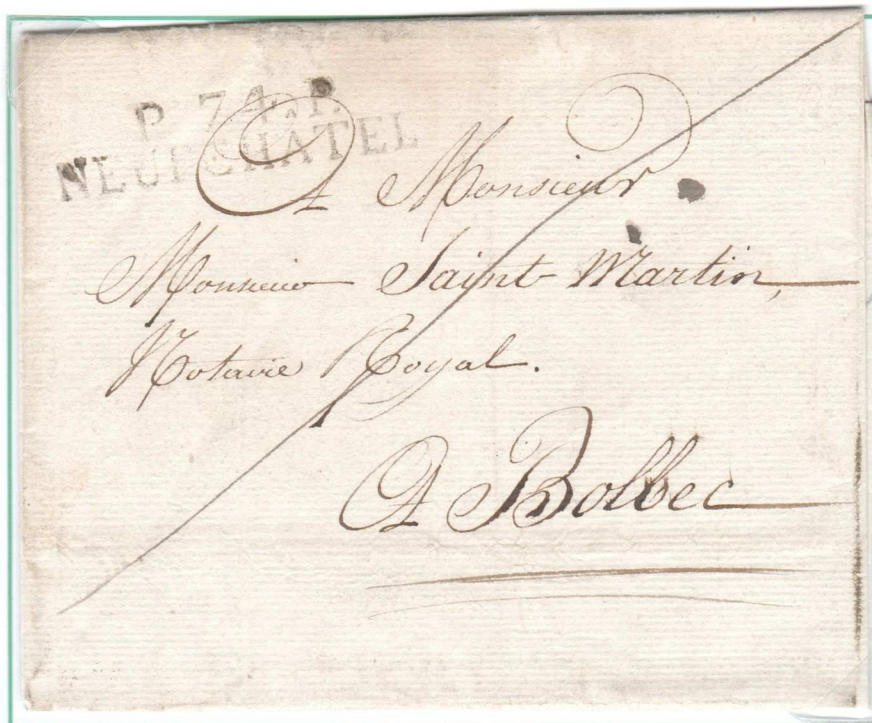 P. 74. P.
NEUFCHÂTEL
A Monsieur
Monsieur Saint Martin,
Notaire Royal.
A Bolbec